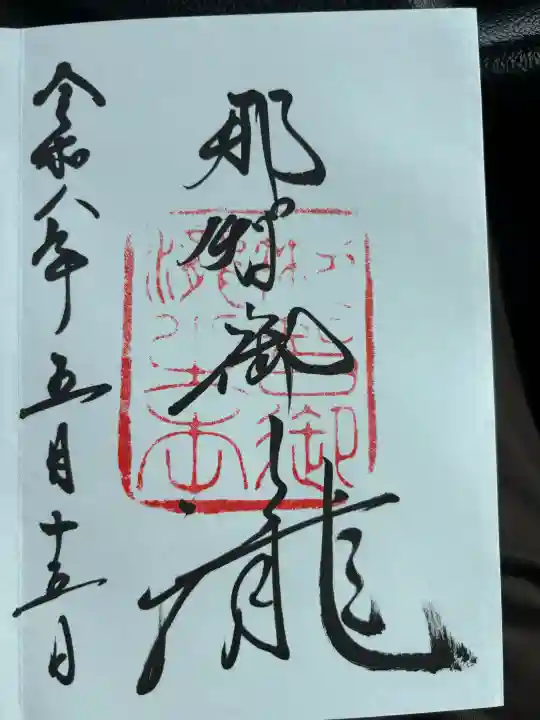 那智御瀧
令和八年五月十五日